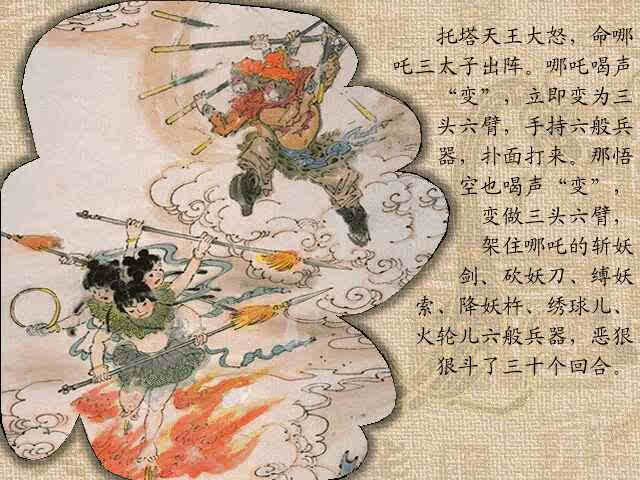 托塔天王大怒，命哪
吒三太子出阵。哪吒喝声
“变”，立即变为三
头六臂，手持六般兵
器，扑面打来。那悟
空也喝声“变”，
变做三头六臂，
架住哪吒的斩妖
剑、砍妖刀、缚妖
索、降妖杵、绣球儿、
火轮儿六般兵器，恶狠
狠斗了三十个回合。